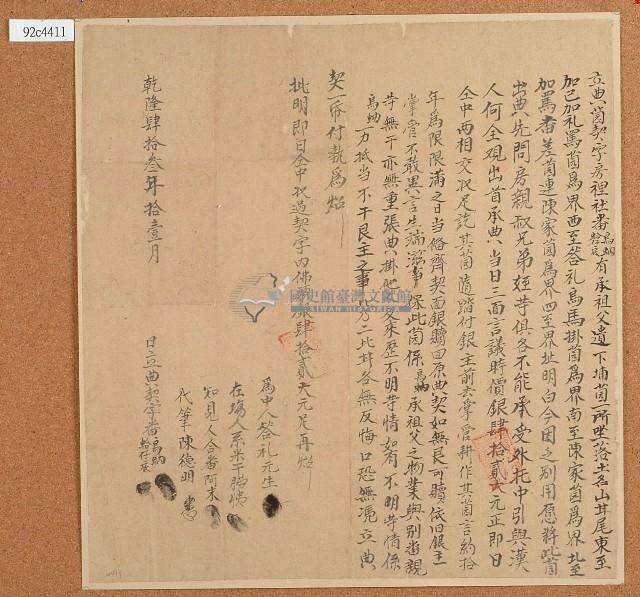 92c4411
立典契字房裡社番 有承祖父遺下埔園一所坐落土名山井尾東至
加己加礼罵園為界西至答礼烏馬掛園為界南至陳家園為界北至
加罵番差園連陳家園為界四至界址明白今因乏別用愿將此園
出典先問房親叔兄弟姪等俱各不能承受外托中引與漢
人何全觀出首承典當日三面言議時價銀肆拾貳大元正即日
全中兩相交收足訖其園隨踏付銀主前去掌管耕作其園言約拾
年為限限滿之日當備齊契面銀贖回原典契如無艮可贖依旧銀主
掌管不敢異言生端滋事保此園係 承祖父之物業與別番親
等無干亦無重張典掛他人交來歷不明等情如有不明等情係
一力抵當不干艮主之事 二比甘各無反悔口恐無憑立典
契一帋付執為炤
批明即日全中收過契字內佛 銀肆拾貳大元足再炤
為中人答礼元生
在場人
知見人合番阿末
代筆陳德明
乾隆肆拾叁年拾壹月 日立典契字番
國史館臺灣文獻館
TAIWAN HISTORICA